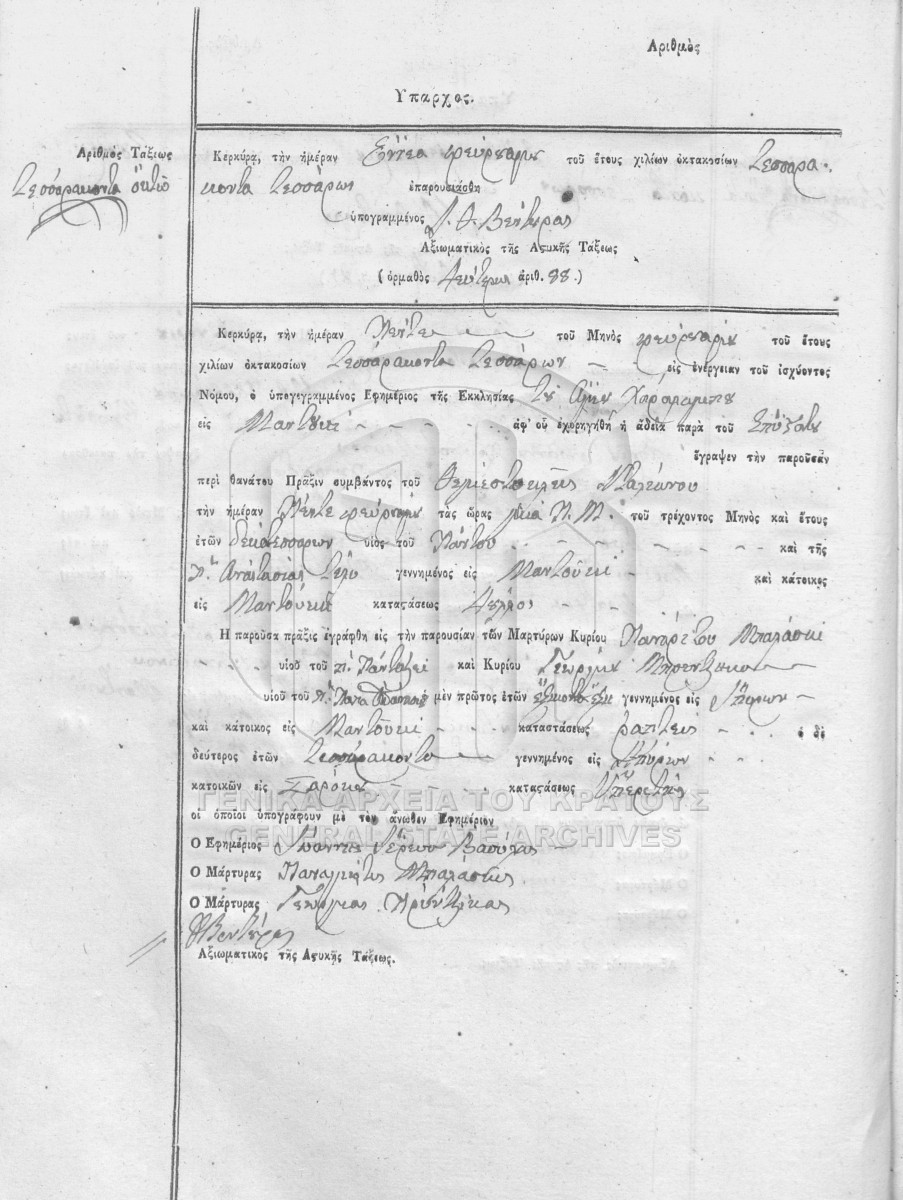 Αριθμὸς
Υπαρχος.
Αριθμὸς Τάξεως
τεσσαρακοντα ὀκτὼ
Κερκύρα, τὴν ἡμέραν Εννέα φευρουαρίου τοῦ ἔτους χιλίων ὀκτακοσίων τεσσαρα-
κοντα τεσσάρων ἐπαρουσιάσθη
ὑπογραμμένος Βεντύρας
Αξιωματικὸς τῆς Αςυκῆς Τάξεως
(ὁρμαθὸς Δευτερος ἀριθ. 88.)
Κερκύρα, τὴν ἡμέραν Πέντε τοῦ Μηνὸς φευρουαρίου τοῦ ἔτους
χιλίων ὀκτακοσίων τεσσαρακοντα τεσσάρων εἰς ἐνέργειαν τοῦ ἰσχύοντος
Νόμου, ὁ ὑπογεγραμμένος Εφημέριος τῆς Εκκλησίας τοῦ Αγίου Χαραλαμπου
εἰς Μαντουκι ἀφ' οὗ ἐχορηγήθη ἡ ἄδεια παρὰ τοῦ Επάρχου
ἔγραψεν τὴν παροῦσαν
περὶ θανάτου Πρᾶξιν συμβάντος τοῦ Θεμιστοκλῆς
τὴν ἡμέραν Πέντε φευρουαρίου τὰς ὥρας μία Π. Μ. τοῦ τρέχοντος Μηνὸς καὶ ἔτους
ἐτῶν δεκατεσσαρων υἱὸς τοῦ Πάντου καὶ τῆς
Π. Αναστασίας γεννημένος εἰς Μαντοῦκι καὶ κάτοικος
εἰς Μαντοῦκι καταςάσεως
Η παροῦσα πρᾶξις ἐγράφθη εἰς τὴν παρουσίαν τῶν Μαρτύρων Κυρίου Παναγιώτου Μπαλάσκι
υἱοῦ τοῦ π. Πάνταζι καὶ Κυρίου Γεωργίου
υἱοῦ τοῦ π. Παπα ὁ μὲν πρῶτος ἐτῶν ἑξηκοντα ἕξι γεννημένος εἰς Ηπειρον
καὶ κάτοικος εἰς Μαντοῦκι καταςάσεως ράπτης ὁ δὲ
δεύτερος ἐτῶν τεσσαρακοντα γεννημένος εἰς Ηπειρον
κατοικῶν εἰς Σαρόκο καταςάσεως Ὑπερέτης
οἱ ὁποῖοι ὑπογράφουν μὲ τὸν ἄνωθεν Εφημέριον
Ο Εφημέριος Ἰωάννης Ιερευς Βασίλας
Ο Μάρτυρας Παναγιότις Μπαλάσκας
Ο Μάρτυρας Γεωργιος
Βεντύρας
Αξιωματικὸς τῆς Αςυκῆς Τάξεως.
ΓΕΝΙΚΑ ΑΡΧΕΙΑ ΤΟΥ ΚΡΑΤΟΥΣ
GENERAL STATE ARCHIVES